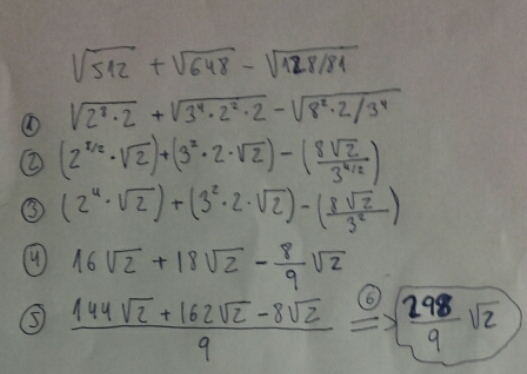 √512 + √648 - √128/81
① √2⁸·2 + √3⁴·2²·2 - √8²·2/3⁴
② (2^8/2·√2)+(3²·2·√2)-(8√2/3^4/2)
③ (2⁴·√2)+(3²·2·√2)-(8√2/3²)
④ 16√2 + 18√2 - 8/9 √2
⑤ 144√2 + 162√2 - 8√2 / 9 ⑥ => 298/9 √2